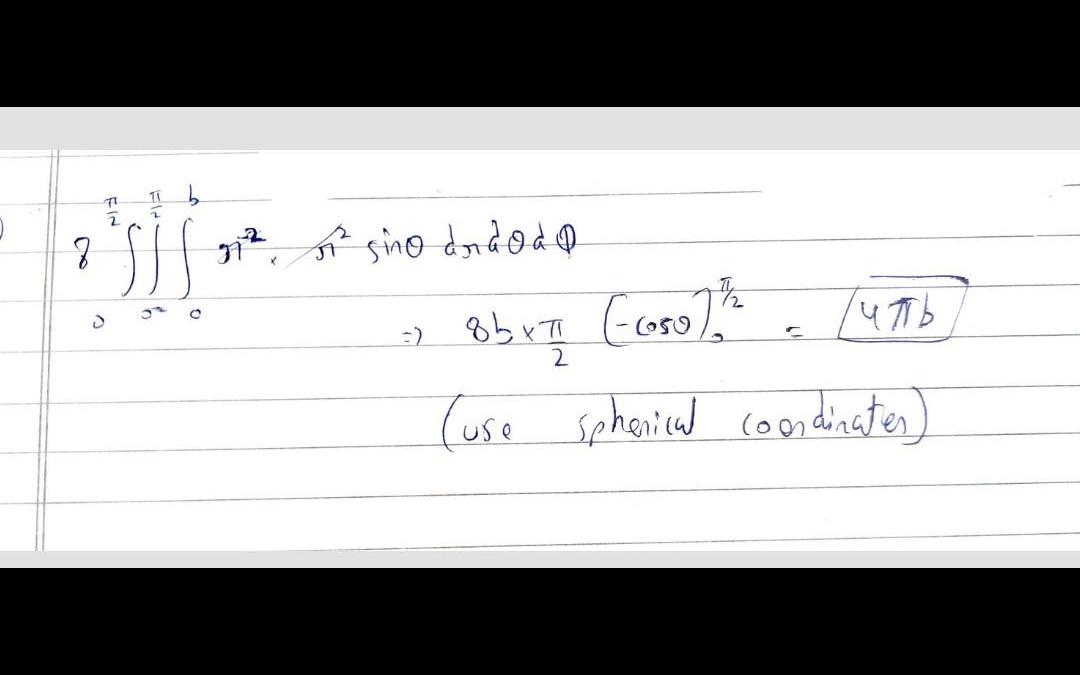 8 ∫₀^{π/2} ∫₀^{π/2} ∫₀^b r⁻² . r² sinθ dr dθ dφ
=) 8b × π/2 [-cosθ]₀^{π/2} = 4πb
(use spherical coordinates)